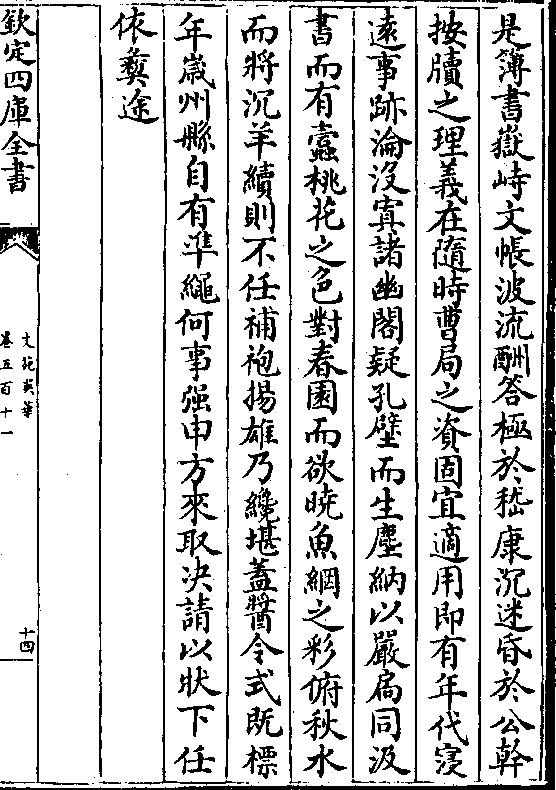 是簿書嶽峙文帳波流酬答極於嵇康沉迷昏於公幹
按牘之理義在隨時曹局之資固宜適用即有年代寖
遠事跡淪沒寘諸幽閣疑孔壁而生塵納以嚴扃同汲
書而有蠹桃花之色對春園而欲曉魚網之彩俯秋水
而將沉羊續則不任補袍揚雄乃纔堪蓋醬令式既標
年歲州縣自有準繩何事強申方來取決請以狀下任
依彝途
欽定四庫全書
文苑英華
卷五百十一
十四